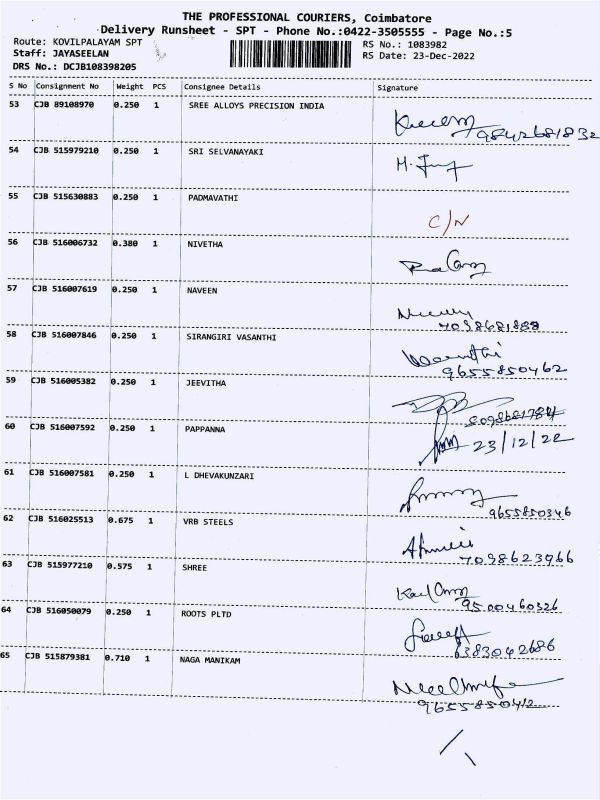 THE PROFESSIONAL COURIERS, Coimbatore
Delivery Runsheet - SPT - Phone No.:0422-3505555 - Page No.:5
Route: KOVILPALAYAM SPT RS No.: 1083982
Staff: JAYASEELAN RS Date: 23-Dec-2022
DRS No.: DCJB108398205
S No Consignment No Weight PCS Consignee Details Signature
53 CJB 89108970 0.250 1 SREE ALLOYS PRECISION INDIA
9842681832
54 CJB 515979210 0.250 1 SRI SELVANAYAKI
55 CJB 515630883 0.250 1 PADMAVATHI
C/N
56 CJB 516006732 0.380 1 NIVETHA
57 CJB 516007619 0.250 1 NAVEEN
7098681888
58 CJB 516007846 0.250 1 SIRANGIRI VASANTHI
9655850462
59 CJB 516005382 0.250 1 JEEVITHA
60 CJB 516007592 0.250 1 PAPPANNA
23/12/22
61 CJB 516007581 0.250 1 L DHEVAKUNZARI
9655850346
62 CJB 516025513 0.675 1 VRB STEELS
7098623966
63 CJB 515977210 0.575 1 SHREE
9500460326
64 CJB 516050079 0.250 1 ROOTS PLTD
6383042686
65 CJB 515879381 0.710 1 NAGA MANIKAM
9655850412